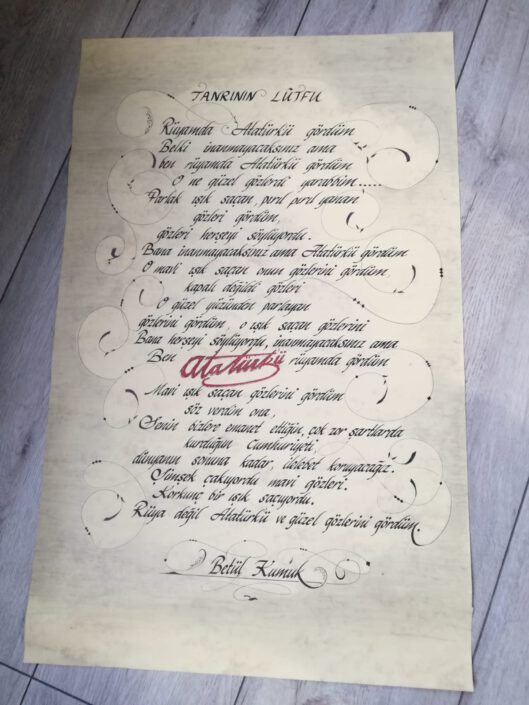 TANRININ LÜTFU
Rüyamda Atatürkü gördüm
Belki inanmayacaksınız ama
ben rüyamda Atatürkü gördüm
O ne güzel gözlerdi yarabbim.....
Parlak ışık saçan, pırıl pırıl yanan
gözleri gördüm,
gözleri herşeyi söylüyordu.
Bana inanmayacaksınız ama Atatürkü gördüm
O mavi ışık saçan onun gözlerini gördüm
kapalı değildi gözleri
O güzel yüzünden parlayan
gözlerini gördüm, o ışık saçan gözlerini
Bana herşeyi söylüyordu, inanmayacaksınız ama
Ben Atatürkü rüyamda gördüm
Mavi ışık saçan gözlerini gördüm
söz verdim ona,
Senin bizlere emanet ettiğin, çok zor şartlarda
kurduğun Cumhuriyeti,
dünyanın sonuna kadar, ilelebet koruyacağız.
Şimşek çakıyordu mavi gözleri.
Korkunç bir ışık saçıyordu.
Rüya değil Atatürkü ve güzel gözlerini gördüm.
Betül Kumuk